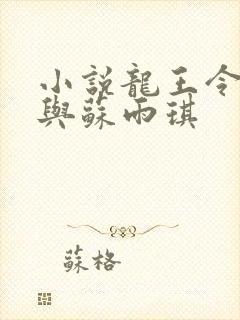 小說龍王令
與蘇雨琪
蘇格